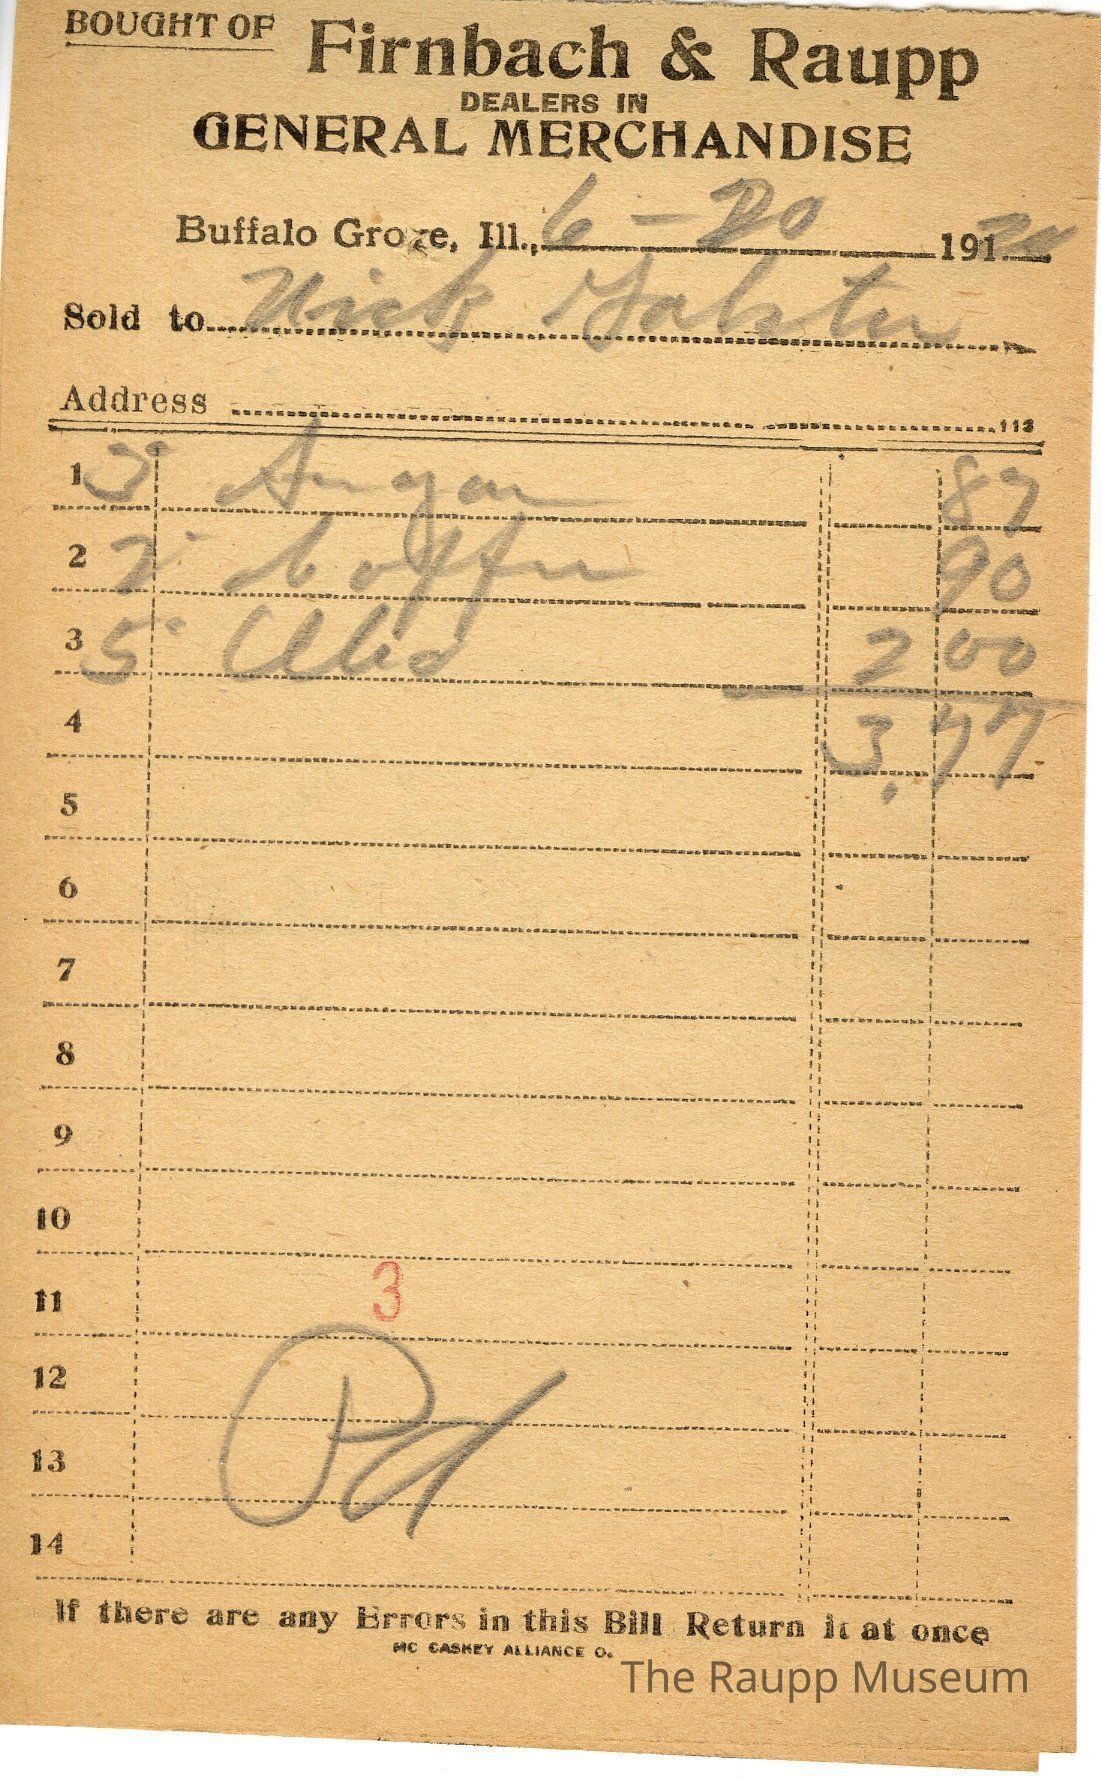 BOUGHT OF Firnbach & Raupp
DEALERS IN
GENERAL MERCHANDISE
Buffalo Grove, Ill., 6-20 191
Sold to Nick
Address 113
1 3 Sugar 87
2 2 Coffee 90
3 5 2 00
4 3.77
5
6
7
8
9
10
3
11
12
Pd
13
14
If there are any Errors in this Bill Return it at once
MC CASKEY ALLIANCE O.
The Raupp Museum